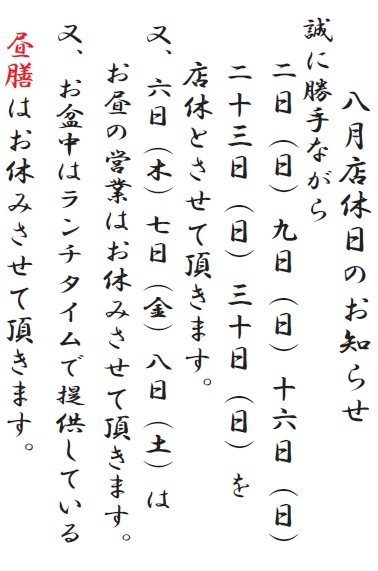 八月店休日のお知らせ
誠に勝手ながら
二日（日）九日（日）十六日（日）
二十三日（日）三十日（日）を
店休とさせて頂きます。
又、六日（木）七日（金）八日（土）は
お昼の営業はお休みさせて頂きます。
又、お盆中はランチタイムで提供している
昼膳はお休みさせて頂きます。